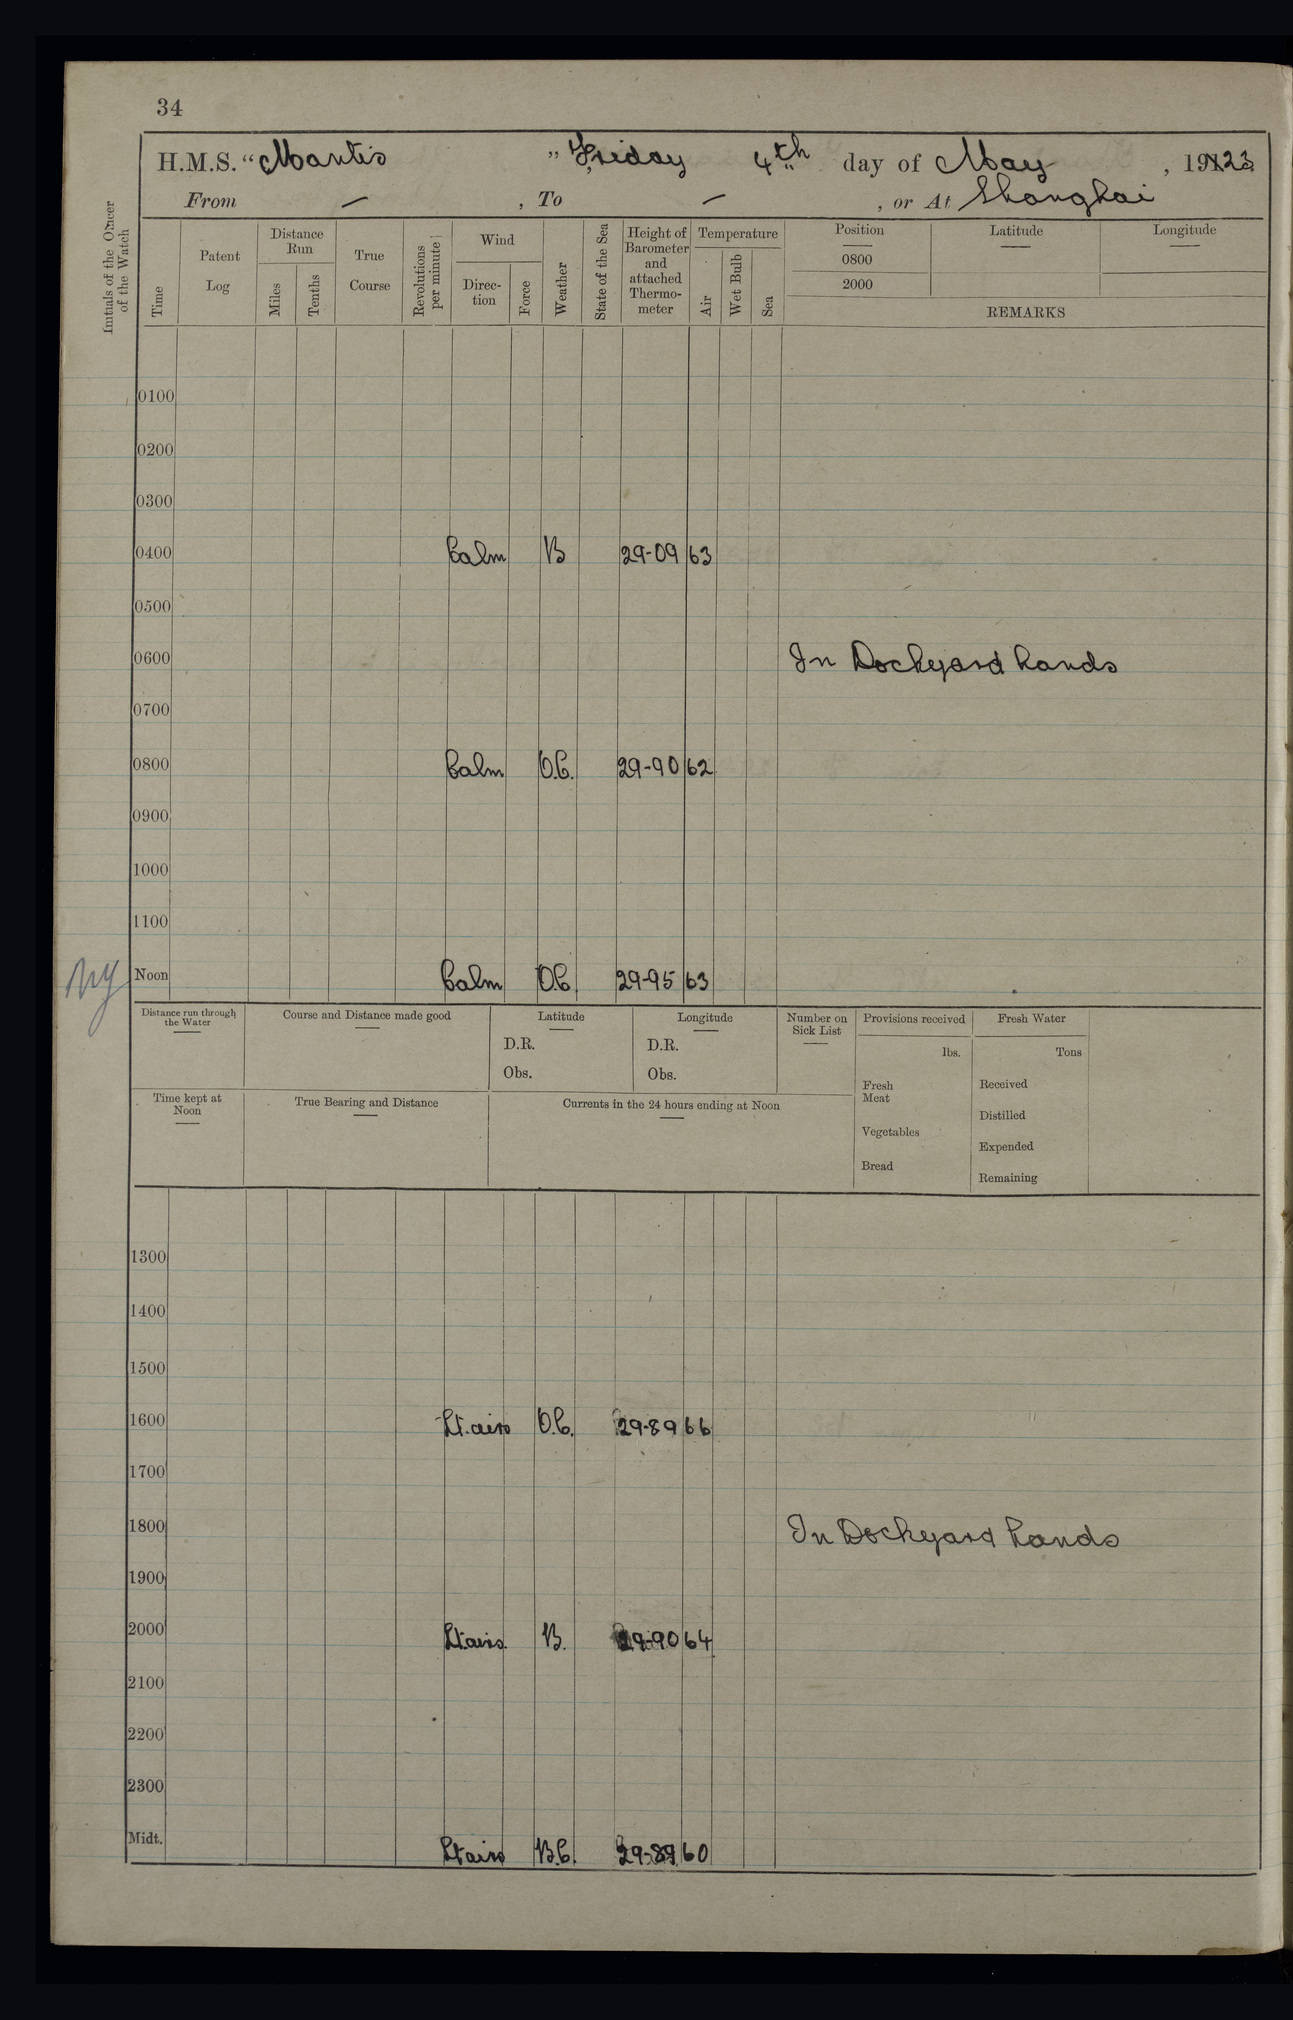 34
H.M.S. "Mantis" Friday 4th day of May, 1923
From — , To — , or At Shanghai
Initials of the Officer of the Watch
Time
Patent Log
Distance Run
Miles
Tenths
True Course
Revolutions per minute
Wind
Direction
Force
Weather
State of the Sea
Height of Barometer and attached Thermometer
Temperature
Air
Wet Bulb
Sea
Position Latitude Longitude
0800
2000
REMARKS
0100
0200
0300
0400 Calm B 29-09 63
0500
0600 In Dockyard hands
0700
0800 Calm O.C. 29-90 62
0900
1000
1100
Noon Calm O.C. 29-95 63
Distance run through the Water
Course and Distance made good
Latitude
D.R.
Obs.
Longitude
D.R.
Obs.
Number on Sick List
Provisions received
lbs.
Fresh Meat
Vegetables
Bread
Fresh Water
Tons
Received
Distilled
Expended
Remaining
Time kept at Noon
True Bearing and Distance
Currents in the 24 hours ending at Noon
1300
1400
1500
1600 Lt. airs O.C. 29-89 66
1700
1800 In Dockyard hands
1900
2000 Lt. airs. B. 29-90 64
2100
2200
2300
Midt. Lt airs B.C. 29-89 60